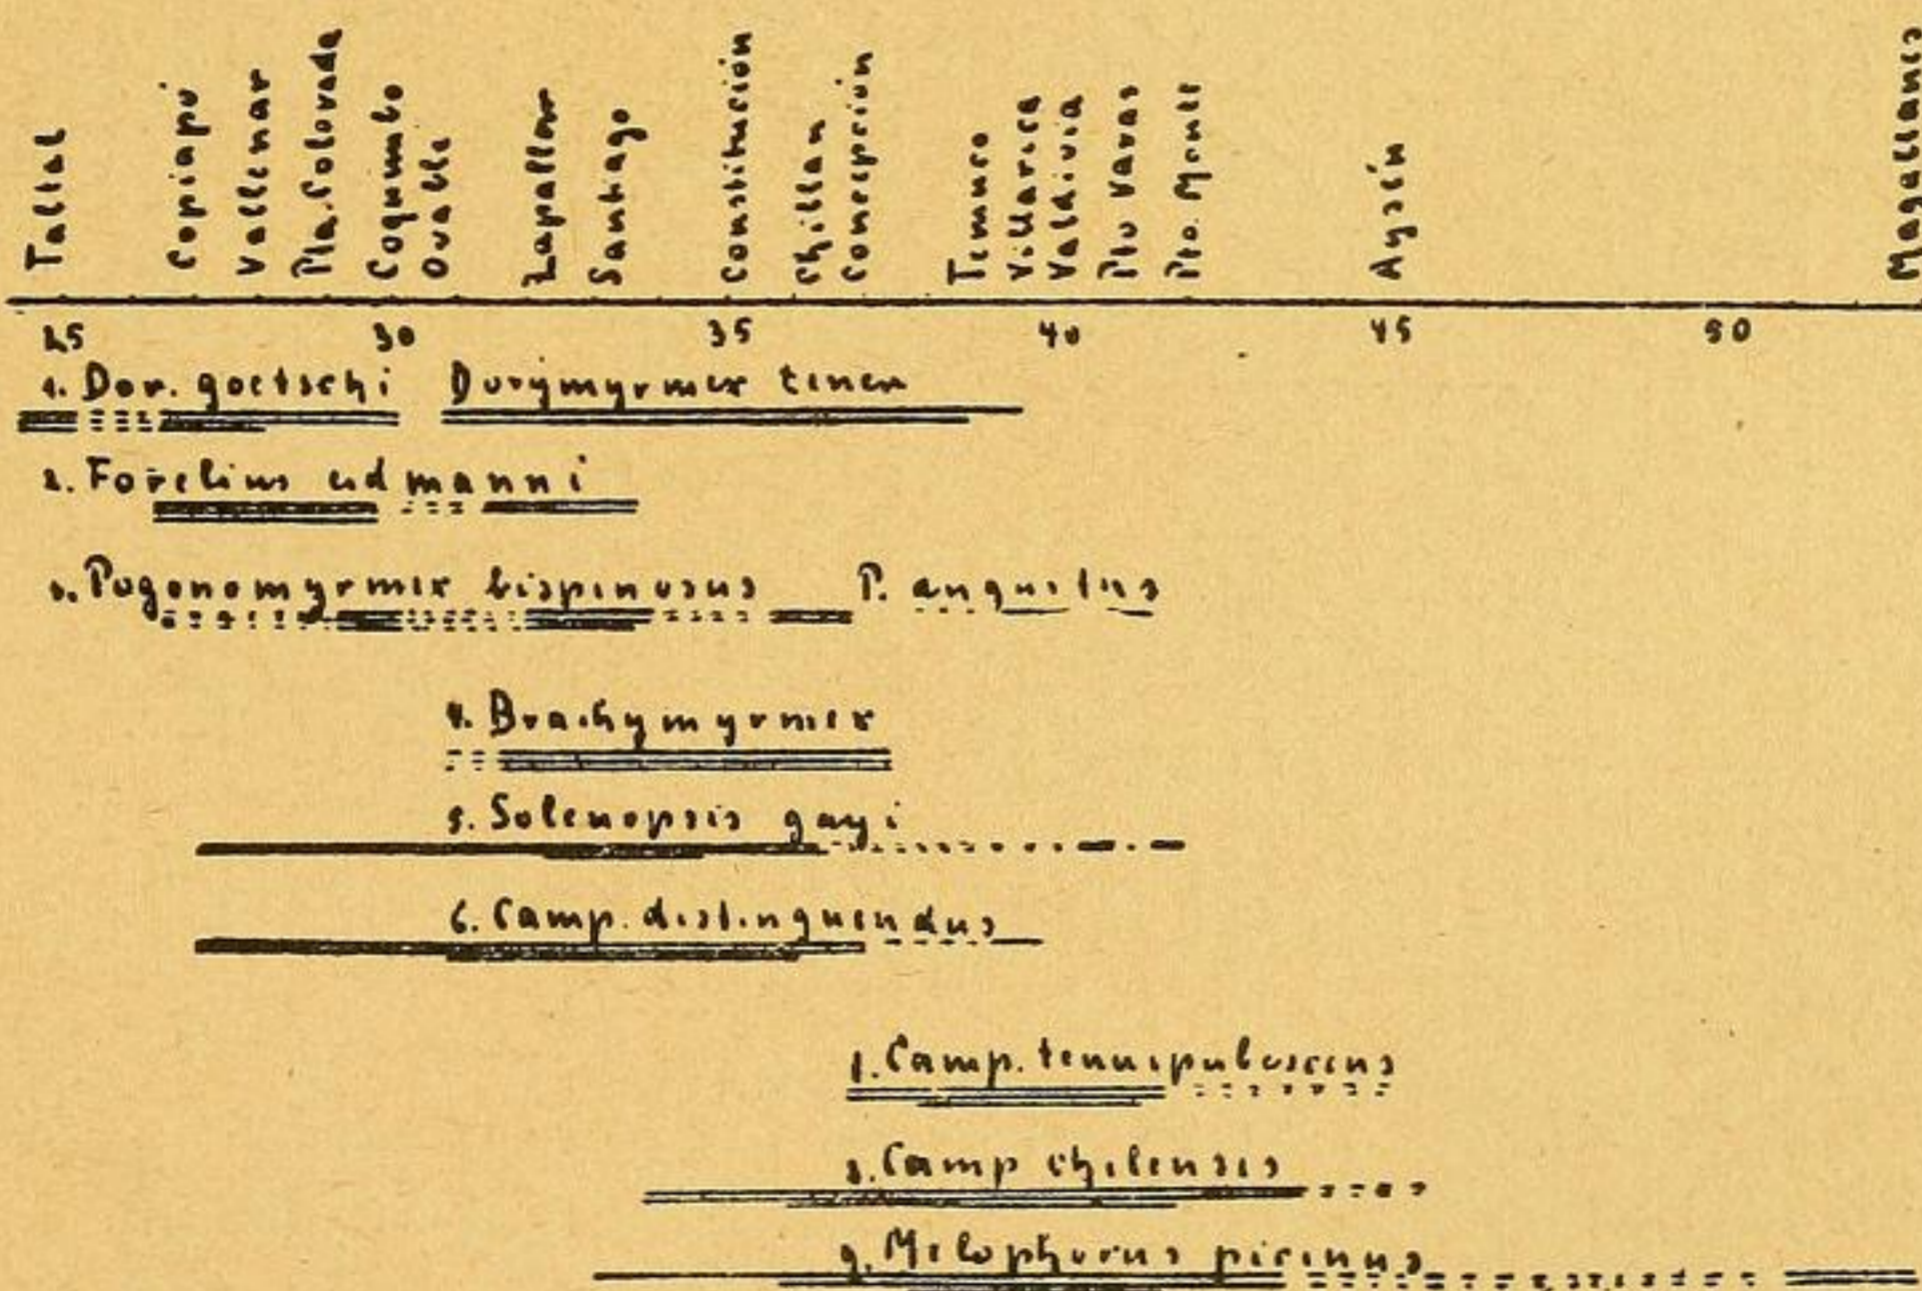 Taltal
Copiapó
Vallenar
Pta. Colorada
Coquimbo
Ovalle
Zapallar
Santiago
Constitución
Chillan
Concepción
Temuco
Villarica
Valdivia
Pto Varas
Pto. Montt
Aysén
Magallanes
25 30 35 40 45 50
1. Dor. goetschi Dorymyrmex tener
2. Forelius eidmanni
3. Pogonomyrmex bispinosus P. angustus
4. Brachymyrmex
5. Solenopsis gayi
6. Camp. distinguendus
7. Camp. tenuipubescens
8. Camp chilensis
9. Melophorus picinus